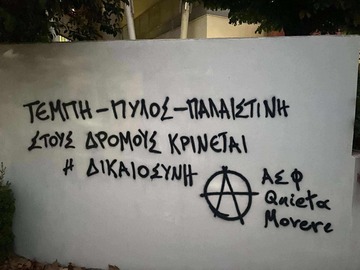 ΤΕΜΠΗ-ΠΥΛΟΣ-ΠΑΛΑΙΣΤΙΝΗ
ΣΤΟΥΣ ΔΡΟΜΟΥΣ ΚΡΙΝΕΤΑΙ
Η ΔΙΚΑΙΟΣΥΝΗ
ΑΣΦ
Quieta
Movere